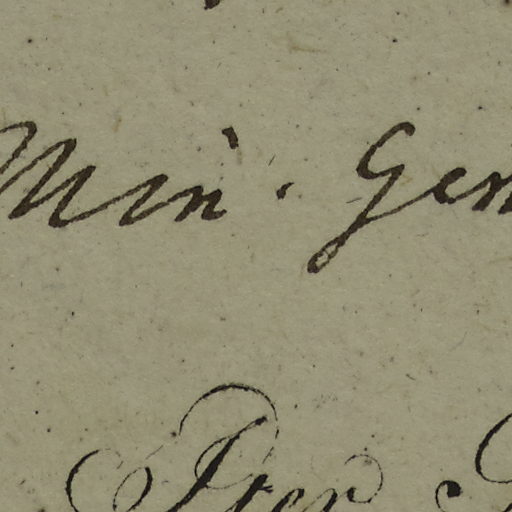 Min. Gen
Iter